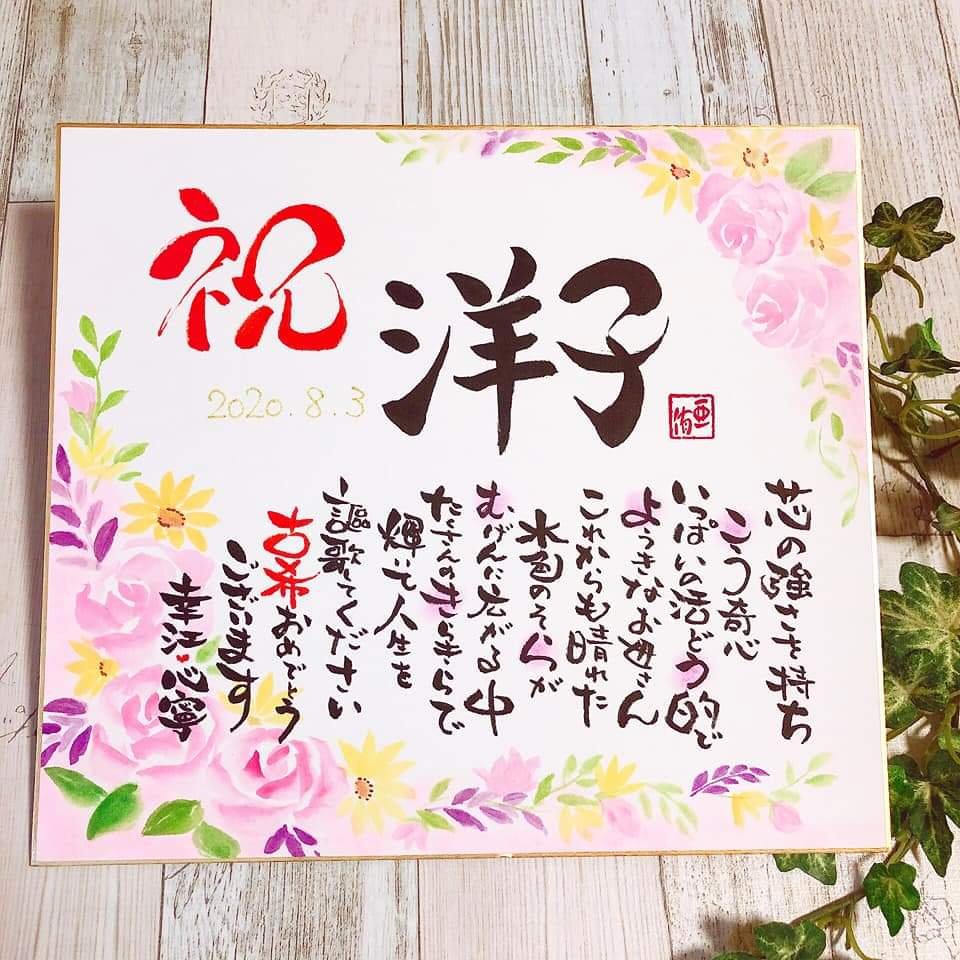 祝
洋子
2020.8.3
亜侑
芯の強さを持ち
こう奇心
いっぱいの活どう的で
ようきなお母さん
これからも晴れた
水色のそらが
むげんに広がる中
たくさんのきらきらで
輝いて人生を
謳歌してください
古希おめでとう
ございます
幸江♥心寧